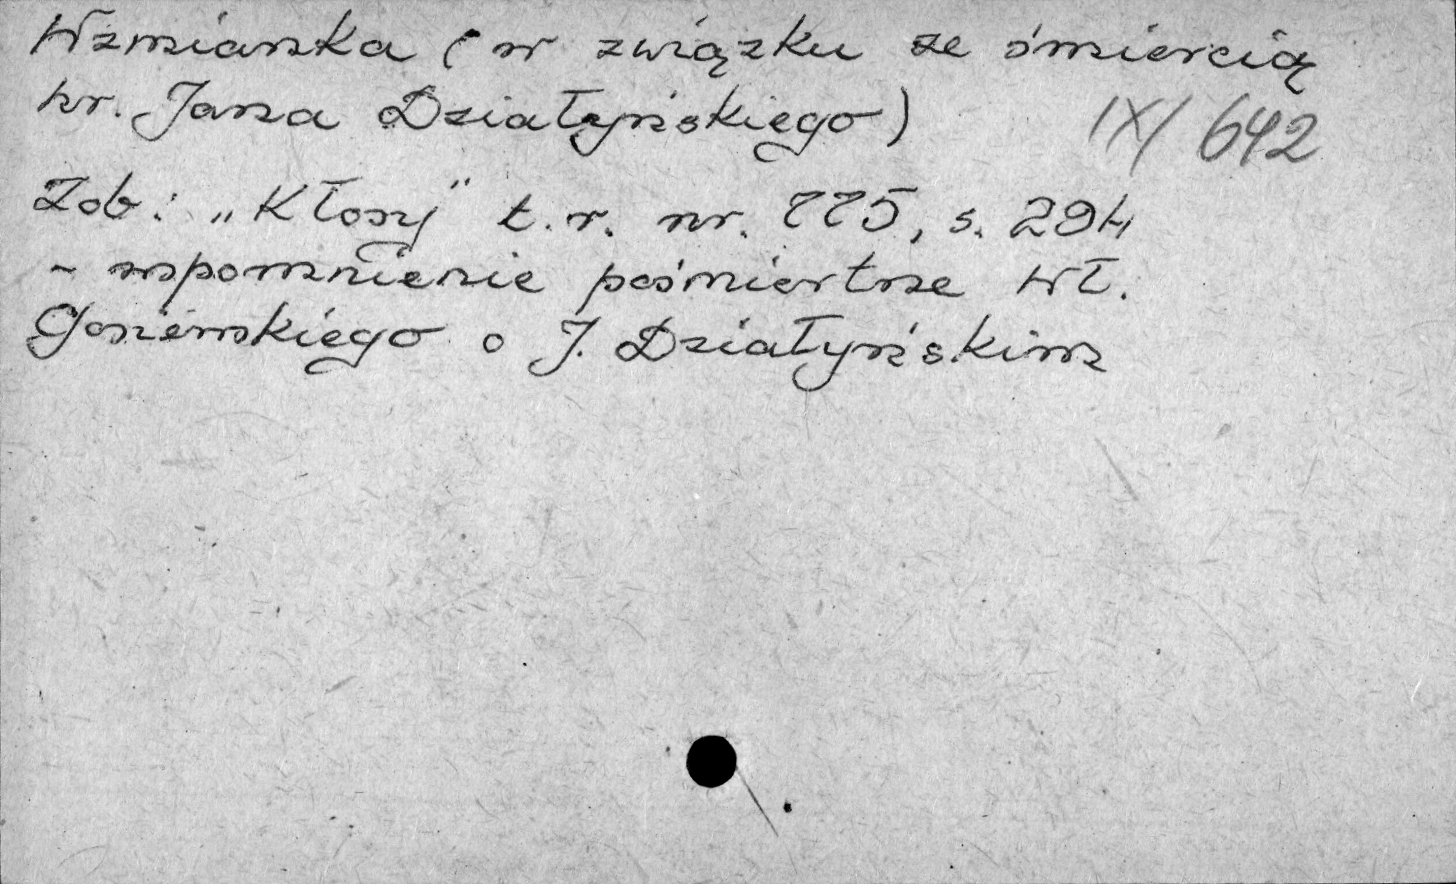 Wzmianka (w związku ze śmiercią
hr. Jana Działyńskiego)
IX/642
Zob: „Kłosy" t.r. nr. 775, s. 294
- wspomnienie pośmiertne Wł.
Gosiewskiego o J. Działyńskim